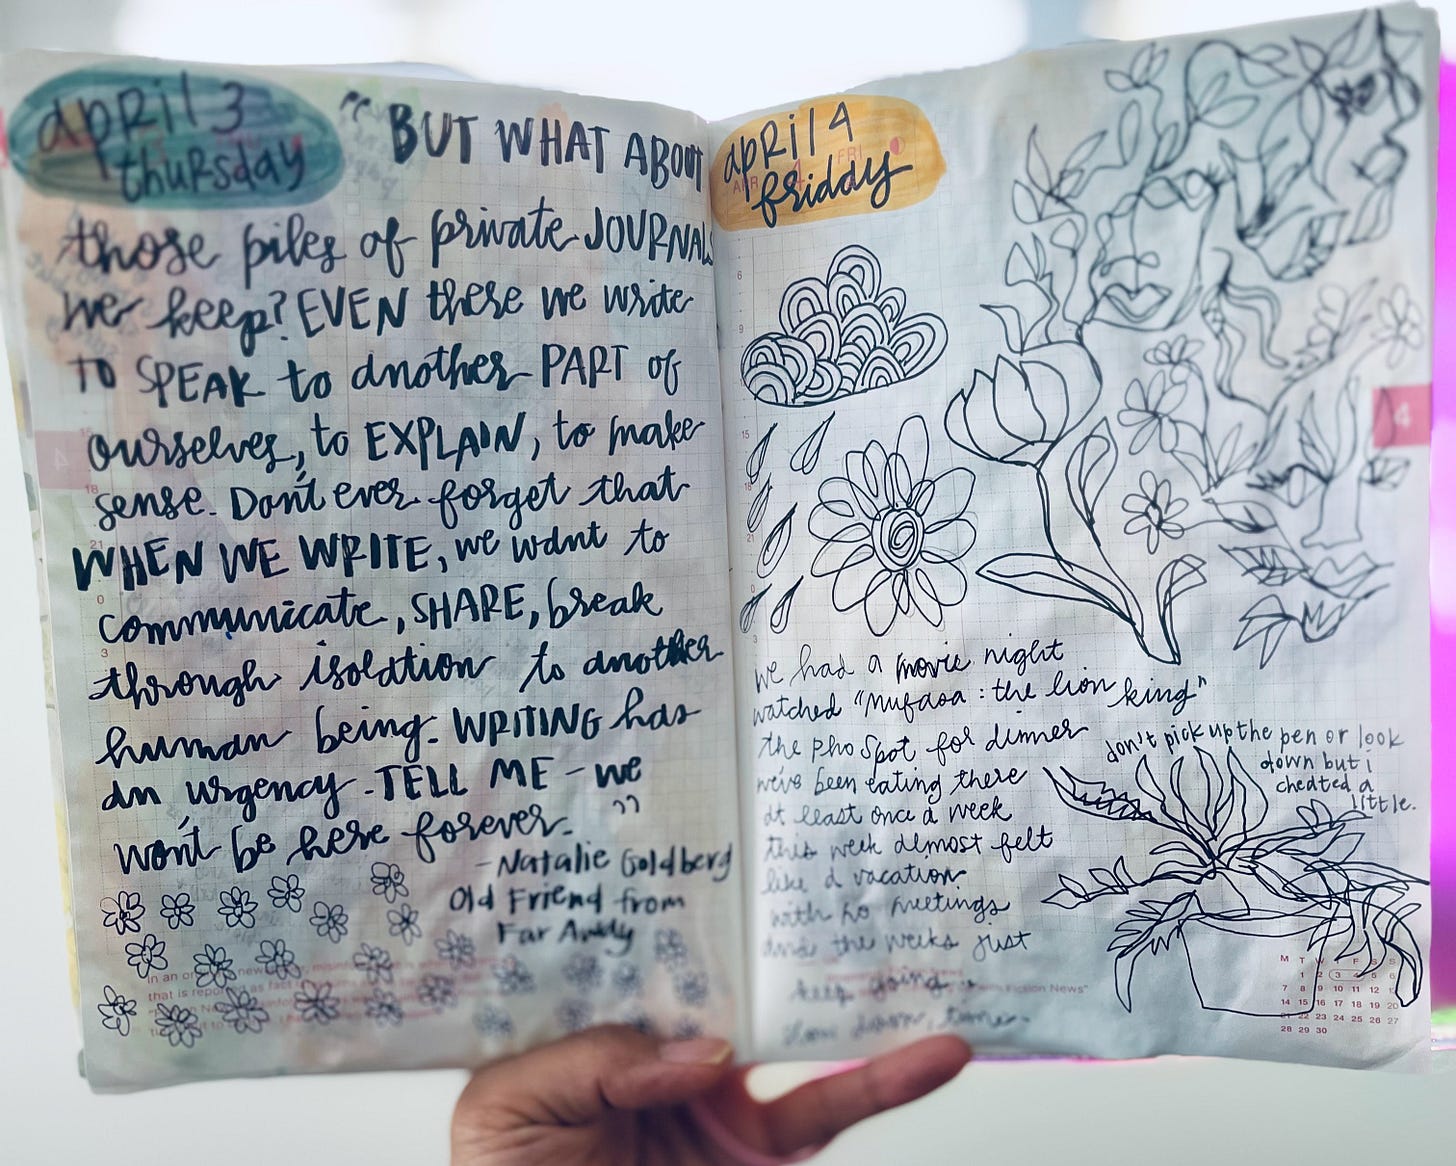 april 3
thursday
"BUT WHAT ABOUT
those piles of private JOURNALS
we keep? EVEN there we write
TO SPEAK to another PART of
ourselves, to EXPLAIN, to make
sense. Don't ever forget that
WHEN WE WRITE, we want to
communicate, SHARE, break
through isolation to another
human being. WRITING has
an urgency. TELL ME - we
won't be here forever."
- Natalie Goldberg
Old Friend from
Far Away
In an
that is
april 4
friday
APR 4 FRI
6
9
15
18
21
0
3
4
we had a movie night
watched "Mufasa: the lion king"
the pho spot for dinner
we've been eating there
at least once a week
this week almost felt
like a vacation
with no meetings
and the weeks just
keep going.
slow down, time.
Fiction News"
don't pick up the pen or look
down but i
cheated a
little.
M T W F S S
1 2 3 4 5 6
7 8 9 10 11 12
14 15 16 17 18 19 20
21 22 23 24 25 26 27
28 29 30